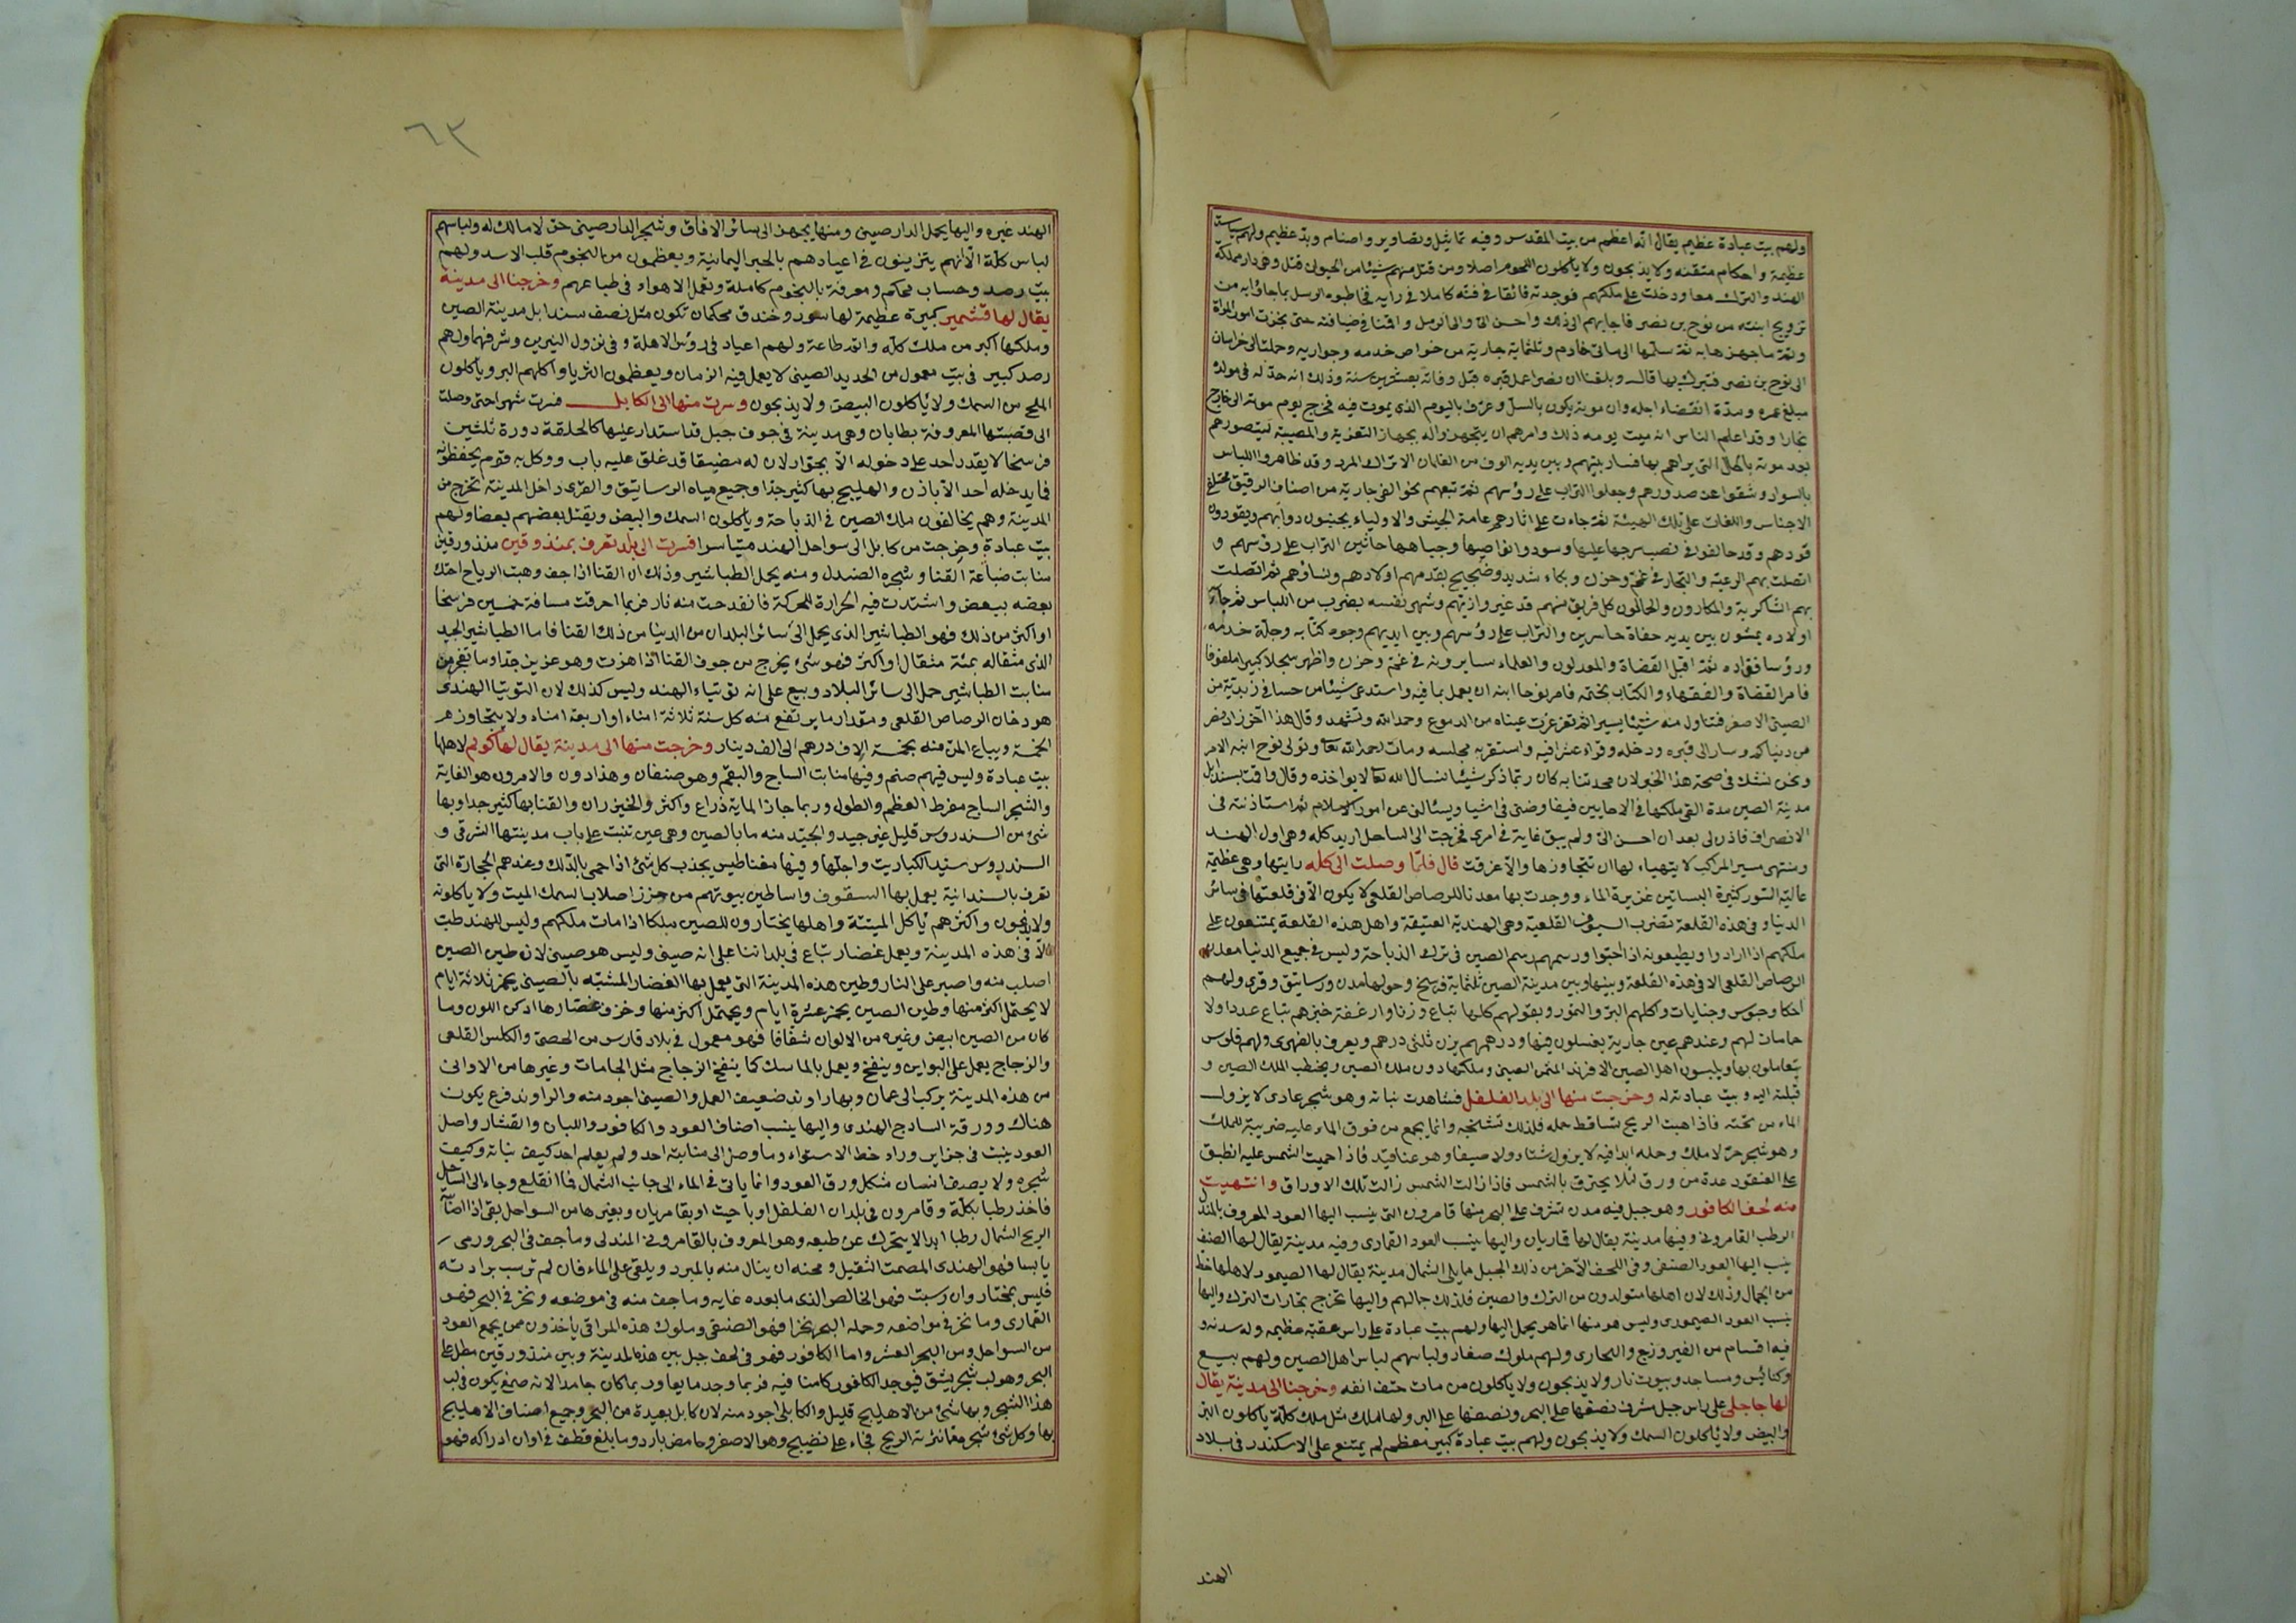 ولهم بيت عبادة عظيم يقال انه اعظم من بيت المقدس وفيه تماثيل وتصاوير واصنام وبد عظيم ولهم سياسة
عظيمة واحكام متقنه ولا يذبحون ولا يأكلون اللحوم اصلا ومن قتل منهم شيئا من الحيوان قتل وهى دار مملكة
الهند والترك معا ودخلت على ملكهم فوجدته فائقا فى فنه كاملا فى رايه فخاطبوه الرسل بما جاؤابه من
تزويج ابنته من نوح بن نصر فاجابهم الى ذلك واحسن الى والى الرسل واقمنا فى ضيافته حتى نجزت امور المرأة
وتمّ ما جهزها به ثمّ سلّمها الى مائتى خادم وثلثمائة جارية من خواص خدمه وجواريه وحملت الى خراسان
الى نوح بن نصر فتبرك بها قال وبلغنا ان نصرا عمل قبره قبل وفاته بعشرين سنة وذلك انه حدّ له فى مولده
مبلغ عمره ومدّة انقضاء اجله وان موته يكون بالسلّ وعرّف باليوم الذى يموت فيه فخرج يوم موته الى خارج
بخارا وقد اعلم الناس انه ميت يومه ذلك وامرهم ان يتجهزوا له بجهاز التعزية والمصيبة ليتصورهم
بعد موته بالحال التى يراهم بها فسار بينهم وبين يديه الوف من الغلمان الاتراك المرد وقد ظاهروا اللباس
بالسواد وشقوا عن صدورهم وجعلوا التراب على رؤسهم ثمّ تبعهم نحو الفى جارية من اصناف الرقيق مختلفى
الاجناس واللغات على تلك الهيئة ثمّ جاءت على اثارهم عامة الجيش والاولياء يجنبون دوابهم ويقودون
قودهم وقد خالفوا فى نصب سرجها عليها وسودوا نواصيها وجباهها حاثين التراب على رؤسهم و
اتصلت بهم الرعية والتجار فى غمّ وحزن وبكاء شديد وضجيج يقدمهم اولادهم ونساؤهم ثم اتصلت
بهم الشاكرية والمكارون والحمالون كل فريق منهم قد غيروا زيهم وشهر نفسه بضرب من اللباس ثم جاء
اولاده يمشون بين يديه حفاة حاسرين والتراب على رؤسهم وبين ايديهم وجوه كتابه وجلة خدمه
ورؤسا قواده ثمّ اقبل القضاة والمعدلون والعلماء يسايرونه فى غمّ وحزن واظهر سجلا كبيرا ملفوفا
فامر القضاة والفقهاء والكتاب بختمه فامر نوحا ابنه ان يعمل بما فيه واستدعى شيئا من حسا فى زبدية من
الصينى الاصفر فتناول منه شيئا يسيرا ثم تغرغرت عيناه من الدموع وحمد الله وتشهد وقال هذا آخر زاد نصر
من دنياكم وسار الى قبره ودخله وقراء عشرا فيه واستقر به مجلسه ومات رحمه الله تعا وتولى نوح ابنه الامر
ونحن نشك فى صحة هذا الخبر لان محدثنا به كان ربما ذكر شيئا نسال الله تعا لا يواخذه وقال واقمت بسندابل
مدينة الصين مدة القى ملكها فى الاحايين فيفاوضنى فى اشيا ويسئالنى عن امور الاسلام ثم استاذنته فى
الانصراف فاذن لى بعد ان احسن الىّ ولم يبق غاية فى امرى فخرجت الى الساحل اريد كله وهى اول الهند
ومنتهى مسير المراكب لا يتهياء لها ان تتجاوزها والاّ غرقت قال فلمّا وصلت الى كله رايتها وهى عظيمة
عالية السّور كثيرة البساتين غزيرة الماء ووجدت بها معدنا للرصاص القلعى لا يكون الاّ فى قلعتها فى سائر
الدنيا وفى هذه القلعة تضرب السيوف القلعية وهى الهندية العتيقة واهل هذه القلعة يمتنعون على
ملكهم اذا ارادوا ويطيعونه اذا احبّوا ورسمهم رسم الصين فى ترك الذباحة وليس فى جميع الدنيا معدن
الرصاص القلعى الا فى هذه القلعة وبينها وبين مدينة الصين ثلثماية فرسخ وحولها مدن ورساتيق وقرى ولهم
احكام وحبوس وجنايات واكلهم البرّ والتمور وبقولهم كلها تباع وزنا وارغفة خبزهم تباع عددا ولا
حمامات لهم وعندهم عين جارية يغسلون فيها ودرهمهم يزن ثلثى درهم ويعرف بالقهرى ولهم فلوس
يتعاملون بها ويلبسون اهل الصين الافرند المثمن الصينى وملكها دون ملك الصين ويخطب الملك الصين و
قبلته اليه وبيت عبادته له وخرجت منها الى بلد الفلفل فشاهدت نباته وهو شجر عادى لا يزول
الماء من تحته فاذا هبت الريح تساقط حمله فلذلك تشنجه وانما يجمع من فوق الماء عليه ضريبة للملك
وهو شجر حرّ لا مالك وحمله ابدا فيه لا يزول شتاء ولا صيفا وهو عناقيد فاذا حميت الشمس عليه انطبق
على العنقود عدة من ورق لئلا يحترق بالشمس فاذا زالت الشمس زالت تلك الاوراق وانتهيت
منه لحف الكافور وهو جبل فيه مدن تشرف على البحر منها قامرون التى ينسب اليها العود المعروف بالمندل
الرطب القامرونى وفيها مدينة يقال لها قماريان واليها ينسب العود القمارى وفيه مدينة يقال لها الصنف
ينسب اليها العود الصنفى وفى اللحف الآخر من ذلك الجبل مما يلى الشمال مدينة يقال لها الصيمور لاهلها حظ
من الجمال وذلك لان اهلها متولدون من الترك والصين فلذلك جمالهم واليها تخرج تجارات الترك واليها
ينسب العود الصيمورى وليس هو منها انما هو يحمل اليها ولهم بيت عبادة على راس عقبة عظيمه وله سدنه و
فيه اقسام من الفيروزج والبجادى ولهم ملوك صغار ولباسهم لباس اهل الصين ولهم بيع
وكنائس ومساجد وبيوت نار ولا يذبحون ولا يأكلون من مات حتف انفه وخرجنا الى مدينة يقال
لها جاجلى على راس جبل مشرف نصفها على البحر ونصفها على البر ولها ملك مثل ملك كلّة ياكلون البرّ
والبيض ولا يأكلون السمك ولا يذبحون ولهم بيت عبادة كبير معظم لم يمتنع على الاسكندر فى بلاد
الهند
٦٣
الهند غيره واليها يحمل الدارصينى ومنها يجهز الى سائر الافاق وشجر الدارصينى حرّ لا مالك له ولباسهم
لباس كلّة الاّ انهم يتزينون فى اعيادهم بالحبر اليمانية ويعظمون من النجوم قلب الاسد ولهم
بيت رصد وحساب محكم ومعرفة بالنجوم كاملة وتعمل الاهواء فى طباعهم وخرجنا الى مدينة
يقال لها قشمير كبيرة عظيمة لها سور وخندق محكمان تكون مثل نصف سندابل مدينة الصين
وملكها اكبر من ملك كلّه واتم طاعة ولهم اعياد فى رؤس الاهلة وفى نزول النيرين وشرفهما ولهم
رصد كبير فى بيت معمول من الحديد الصينى لا يعمل فيه الزمان ويعظمون الثريا واكلهم البر وياكلون
الملح من السمك ولا يأكلون البيض ولا يذبحون وسرت منها الى الكابل فسرت شهرا حتى وصلت
الى قصبتها المعروفة بطابان وهى مدينة فى جوف جبل قد استدار عليها كالحلقة دورة ثلثين
فرسخا لا يقدر احد على دخوله الاّ بجواز لان له مضيقا قد غلق عليه باب ووكل به قوم يحفظونه
فما يدخله احد الاّ باذن والهليج بها كثير جدّا وجميع مياه الرساتيق والقرى داخل المدينة تخرج من
المدينة وهم يخالفون ملك الصين فى الذباحة وياكلون السمك والبيض ويقتل بعضهم بعضا ولهم
بيت عبادة وخرجت من كابل الى سواحل الهند متياسرا فسرت الى بلد تعرف بمندوقين مندورقين
منابت ضباعة القنا وشجره الصندل ومنه يحمل الطباشير وذلك ان القنا اذا جف وهبت الرياح احتك
بعضه ببعض واشتدت فيه الحرارة للحركة فانقدحت منه نار فربما احرقت مسافة خمسين فرسخا
او اكثر من ذلك فهو الطباشير الذى يحمل الى سائر البلدان من الدنيا من ذلك القنا فاما الطباشير الجيد
الذى مثقاله بمئة مثقال او اكثر فهو شئ يخرج من جوف القنا اذا هزت وهو عزيز جدّا وما تفجر من
منابت الطباشير حمل الى سائر البلاد وبيع على انه توتياء الهند وليس كذلك لان التوتيا الهندى
هو دخان الرصاص القلعى ومقدار ما يرتفع منه كل سنة ثلاثة امناء او اربعة امناء ولا يتجاوز
الخمسة ويباع المن منه بخمسة الاف درهم الى الف دينار وخرجت منها الى مدينة يقال لها كولم لاهلها
بيت عبادة وليس فيهم صنم وفيها منابت الساج والبقم وهو صنفان وهذا دون والامرون هو الغاية
والشجر الساج مفرط العظم والطول وربما جاز الماية ذراع واكثر والخيزران والقنا بها كثير جدا وبها
شئ من السندروس قليل غير جيد والجيّد منه ما بالصين وهى عين تنبت على باب مدينتها الشرقى و
السندروس سيد الكباريت واجلّها وفيها مغناطيس يجذب كل شئ اذا حمى بالدّلك وعندهم الحجارة التى
تعرف بالسندانية يعمل بها السقوف واساطين بيوتهم من خرز اصلاب السمك الميت ولا ياكلونه
ولا يذبحون واكثرهم يأكل الميتة واهلها يختارون للصين ملكا اذا مات ملكهم وليس للهند طب
الاّ فى هذه المدينة ويعمل غضار تباع فى بلداننا على انه صينى وليس هو صينى لان طين الصين
اصلب منه واصبر على النار وطين هذه المدينة التى يعمل بها الغضار المشبّه بالصينى يخمر ثلاثة ايام
لا يحتمل اكثر منها وطين الصين يخمر عشرة ايام ويحتمل اكثر منها وخزف غضارها ادكن اللون وما
كان من الصين ابيض وغيره من الالوان شفافا فهو معمول فى بلاد فارس من الحصى والكلس القلعى
والزجاج يعمل على البواين وينفخ ويعمل بالماسك كما ينفخ الزجاج مثل الجامات وغيرها من الاوانى
من هذه المدينة يركب الى عمان وبها راوند ضعيف العمل والصينى اجود منه والراوند قرع يكون
هناك وورقة الساذج الهندى واليها ينسب اصناف العود والكافور واللبان والقشار واصل
العود ينبت فى جزاير وراء خط الاستواء وما وصل الى منابته احد ولم يعلم احد كيف نباته وكيف
شجره ولا يصف انسان شكل ورق العود وانما ياتى فى الماء الى جانب الشمال فما انقلع وجاء الى الساحل
فاخذ رطبا بكلّة وقامرون فى بلدان الفلفل او باحيت او بقامريان وبغيرها من السواحل بقى اذا اصابته
الريح الشمال رطبا ابدا لا يتحرك عن طبعه وهو المعروف بالقامرونى المندلى وما جف فى البحر ورمى
يابسا فهو الهندى المصمت الثقيل ومحنه ان ينال منه بالمبرد ويلقى على الماء فان لم ترسب برادته
فليس بمختار وان رسبت فهو الخالص الذى ما بعده غايه وما جف منه فى موضعه ونخر فى البحر فهو
القمارى وما نخر فى مواضعه وحمله البحر نخرا فهو الصنفى وملوك هذه المراقى يأخذون ممن يجمع العود
من السواحل ومن البحر العشر واما الكافور فهو فى لحف جبل بين هذه المدينة وبين مندورقين مطل على
البحر وهو لب شجر يشق فيوجد الكافور كامنا فيه فربما وجد مايعا وربما كان جامدا لانه صمغ يكون فى لب
هذا الشجر وبها شئ من الاهليلج قليل والكابلى اجود منه لان كابل بعيدة من البحر وجميع اصناف الاهليلج
بها وكل شئ شجر مما نثرته الريح فجاء على نضيج وهو الاصفر وحامض بارد وما بلغ وقطف فى اوان ادراكه فهو